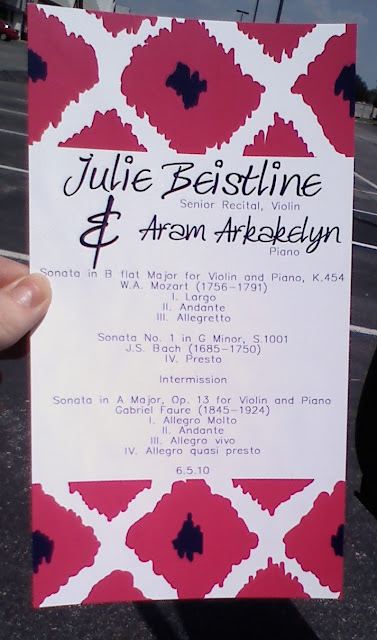 Julie Beistline
Senior Recital, Violin
& Aram Arkakelyn
Piano
Sonata in B flat Major for Violin and Piano, K.454
W.A. Mozart (1756-1791)
I. Largo
II. Andante
III. Allegretto
Sonata No. 1 in G Minor, S.1001
J.S. Bach (1685-1750)
IV. Presto
Intermission
Sonata in A Major, Op. 13 for Violin and Piano
Gabriel Faure (1845-1924)
I. Allegro Molto
II. Andante
III. Allegro vivo
IV. Allegro quasi presto
6.5.10